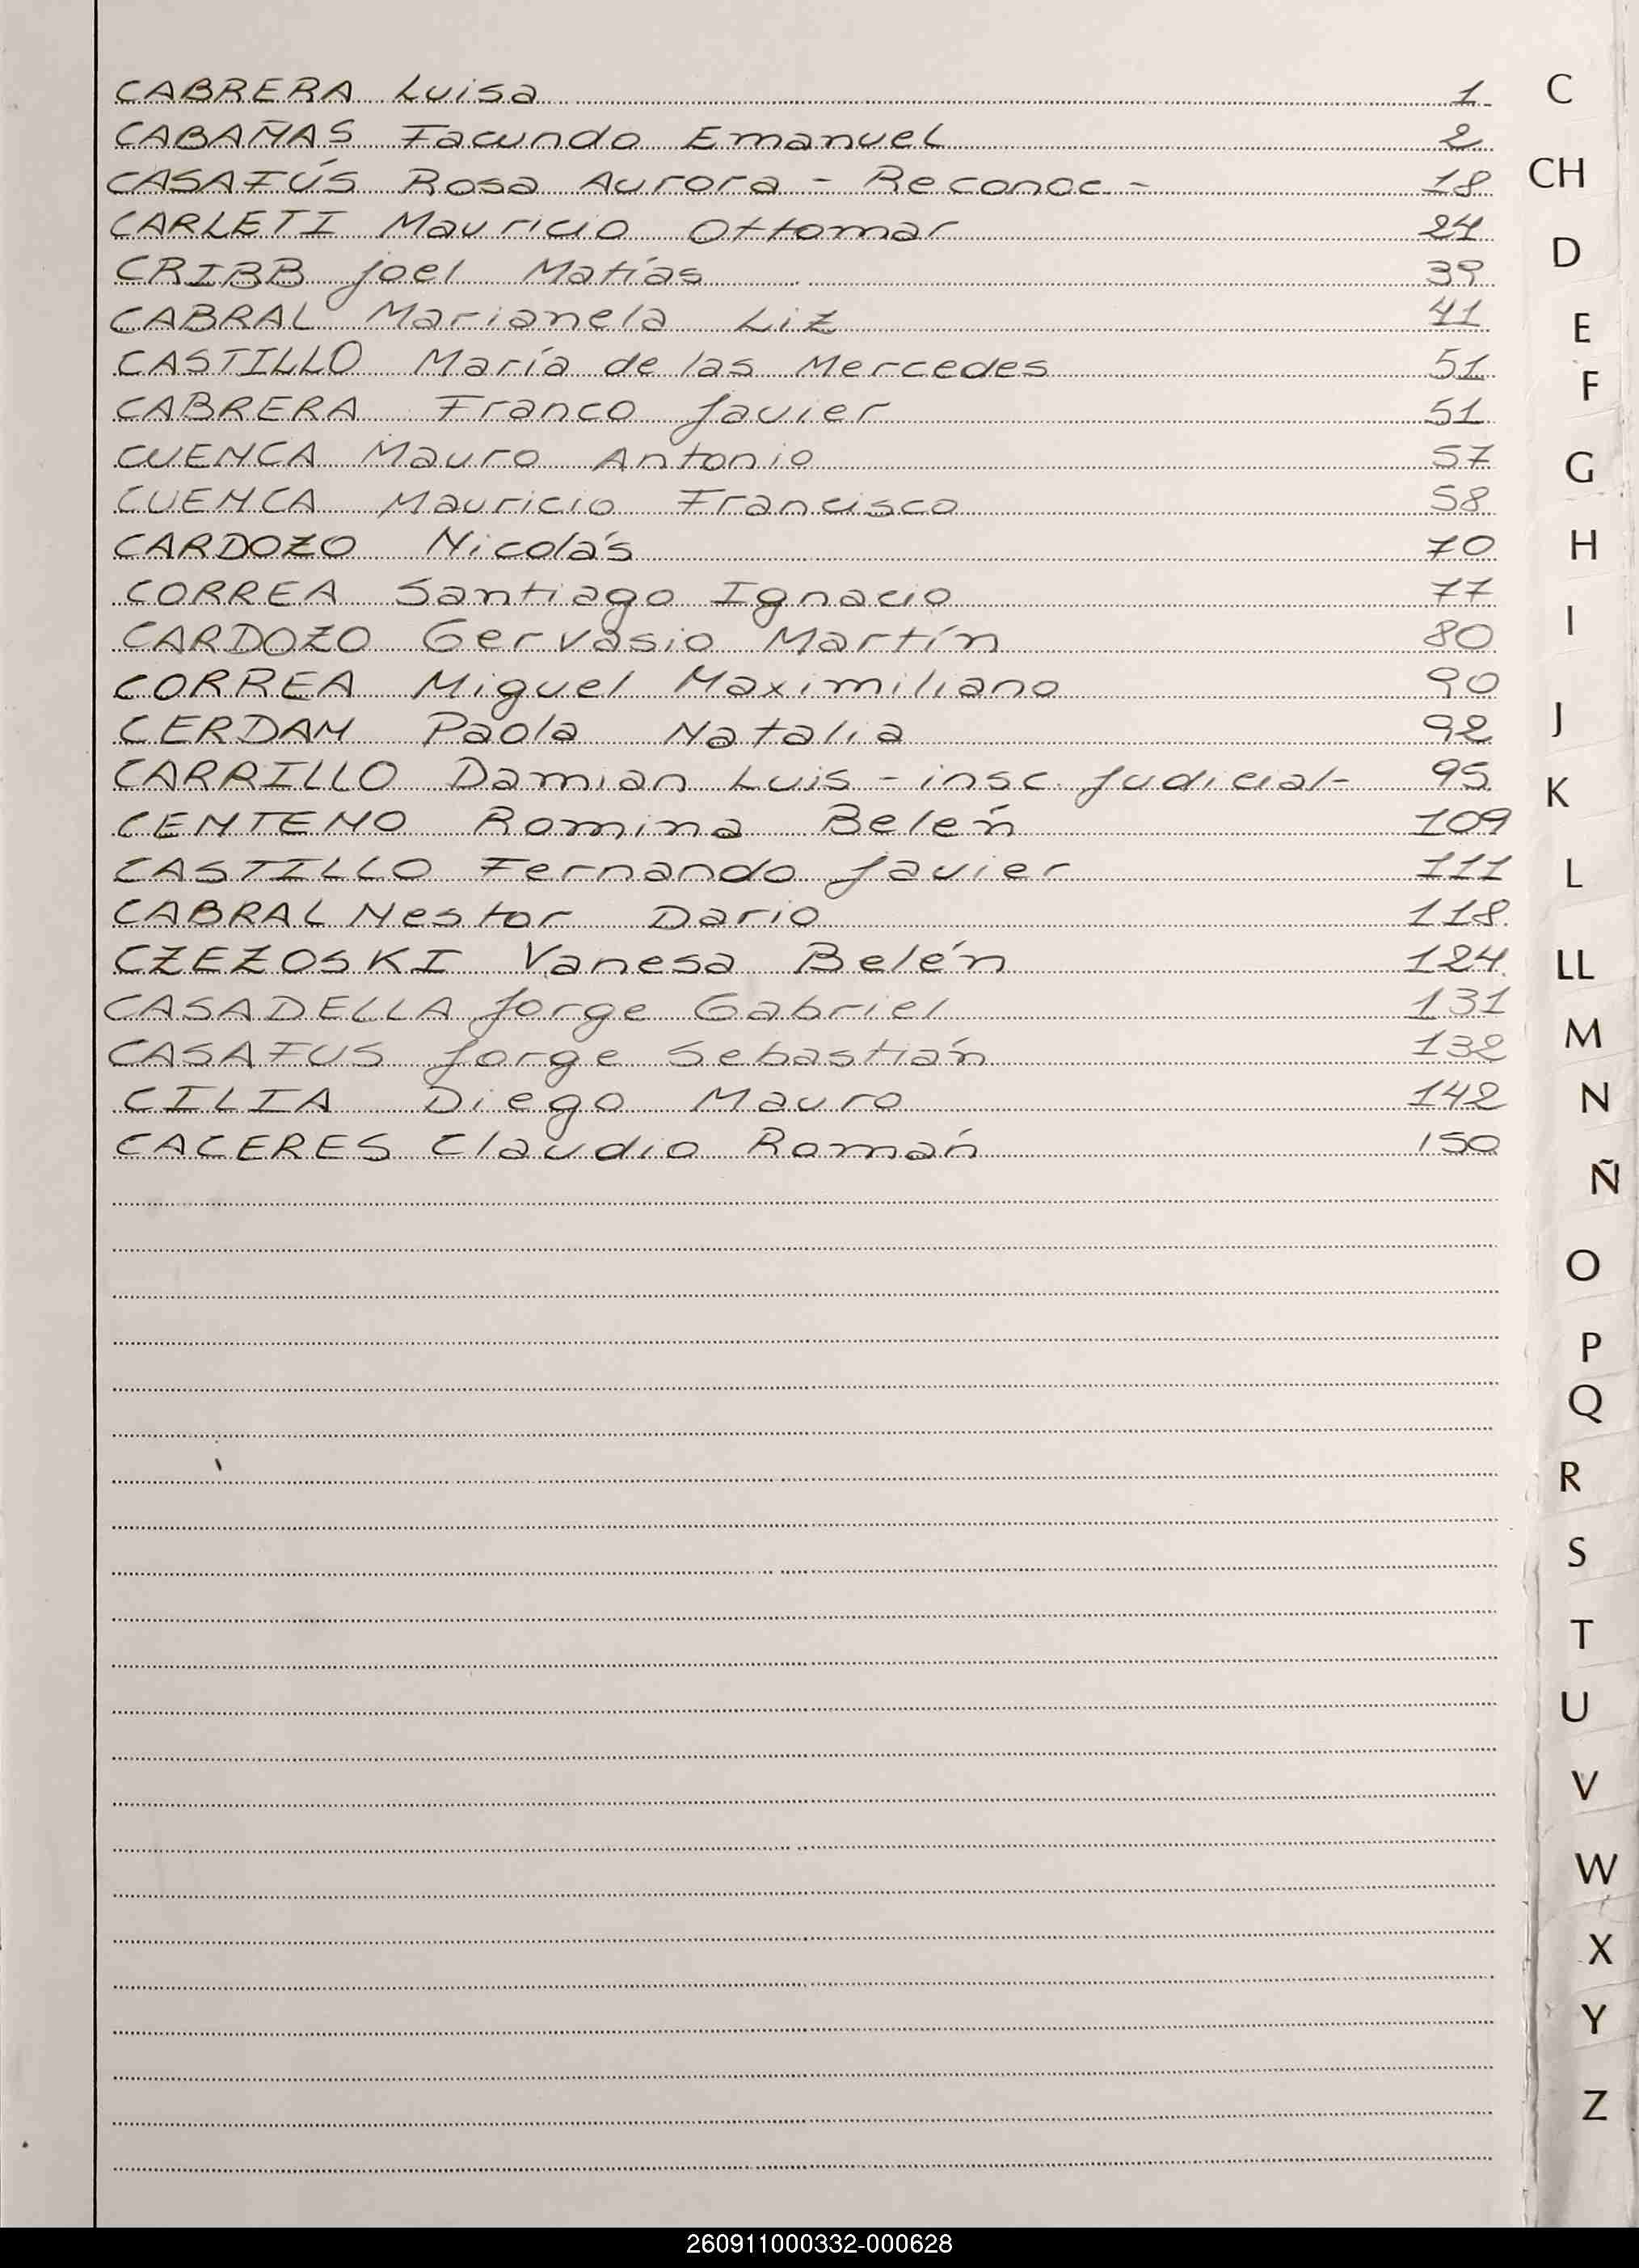 CABRERA Luisa 1
CABAÑAS Facundo Emanuel 2
CASAFÚS Rosa Aurora - Reconoc - 18
CARLETI Mauricio Ottomar 24
CRIBB Joel Matías 39
CABRAL Marianela Liz 41
CASTILLO María de las Mercedes 51
CABRERA Franco Javier 51
CUENCA Mauro Antonio 57
CUENCA Mauricio Francisco 58
CARDOZO Nicolás 70
CORREA Santiago Ignacio 77
CARDOZO Gervasio Martín 80
CORREA Miguel Maximiliano 90
CERDAN Paola Natalia 92
CARRILLO Damian Luis - insc. Judicial- 95
CENTENO Romina Belén 109
CASTILLO Fernando Javier 111
CABRAL Nestor Dario 118
CZEZOSKI Vanesa Belén 124
CASADELLA Jorge Gabriel 131
CASAFUS Jorge Sebastián 132
CILIA Diego Mauro 142
CACERES Claudio Román 150
C
CH
D
E
F
G
H
I
J
K
L
LL
M
N
Ñ
O
P
Q
R
S
T
U
V
W
X
Y
Z
260911000332-000628